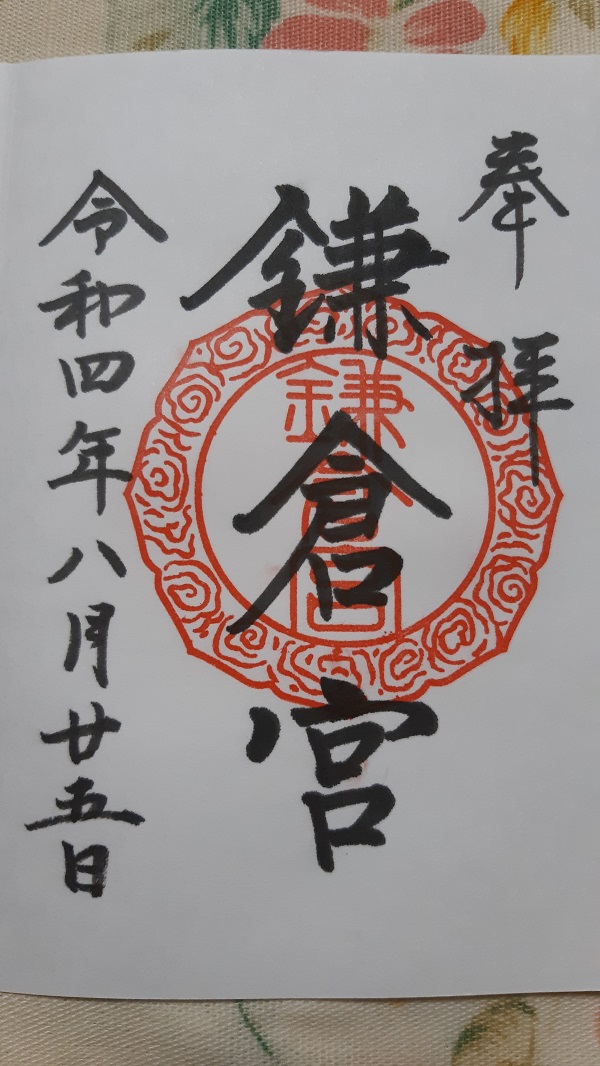 奉拝
鎌倉宮
鎌倉宮
令和四年八月廿五日